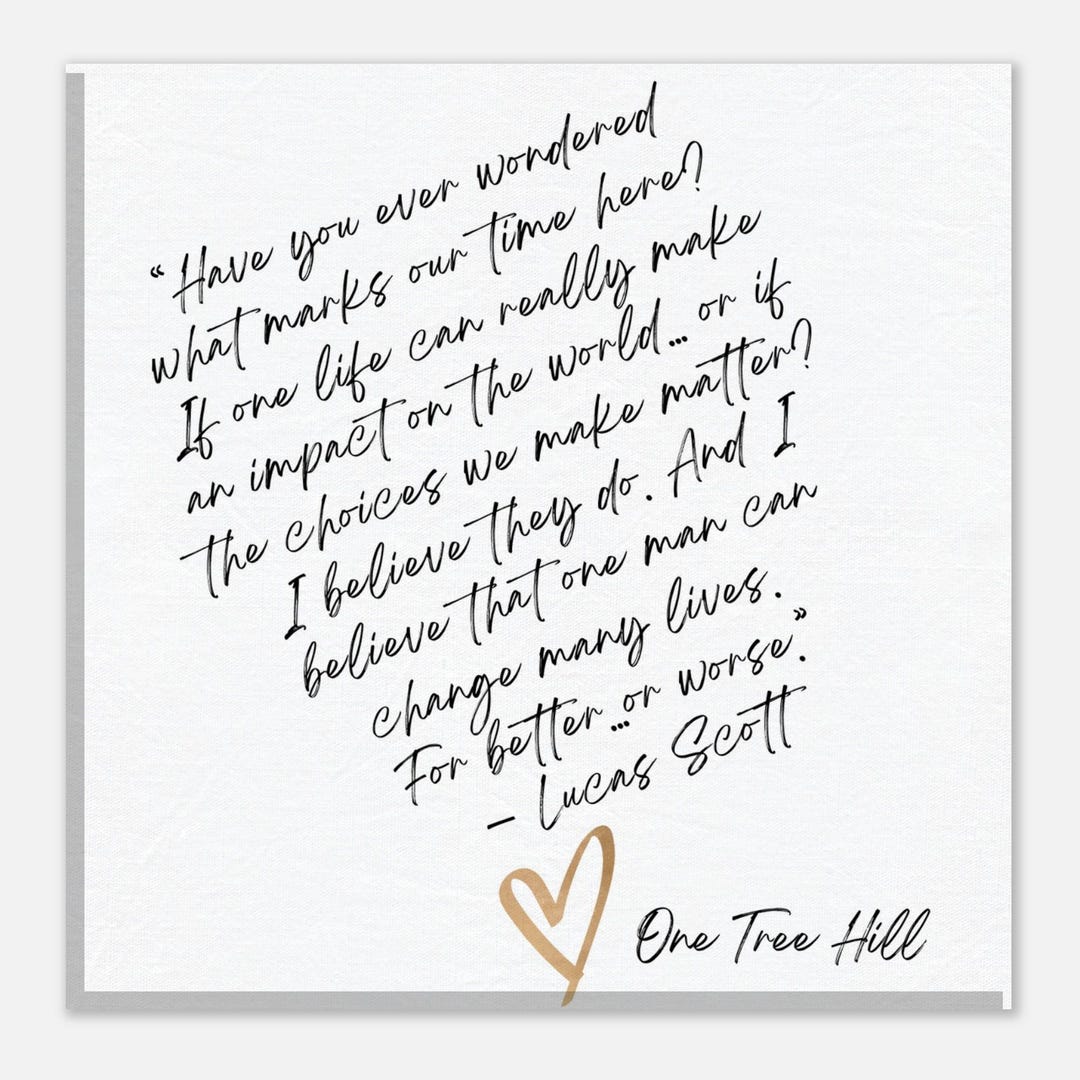 “Have you ever wondered
what marks our time here?
If one life can really make
an impact on the world... or if
the choices we make matter?
I believe they do. And I
believe that one man can
change many lives.
For better...or worse.”
– Lucas Scott
One Tree Hill